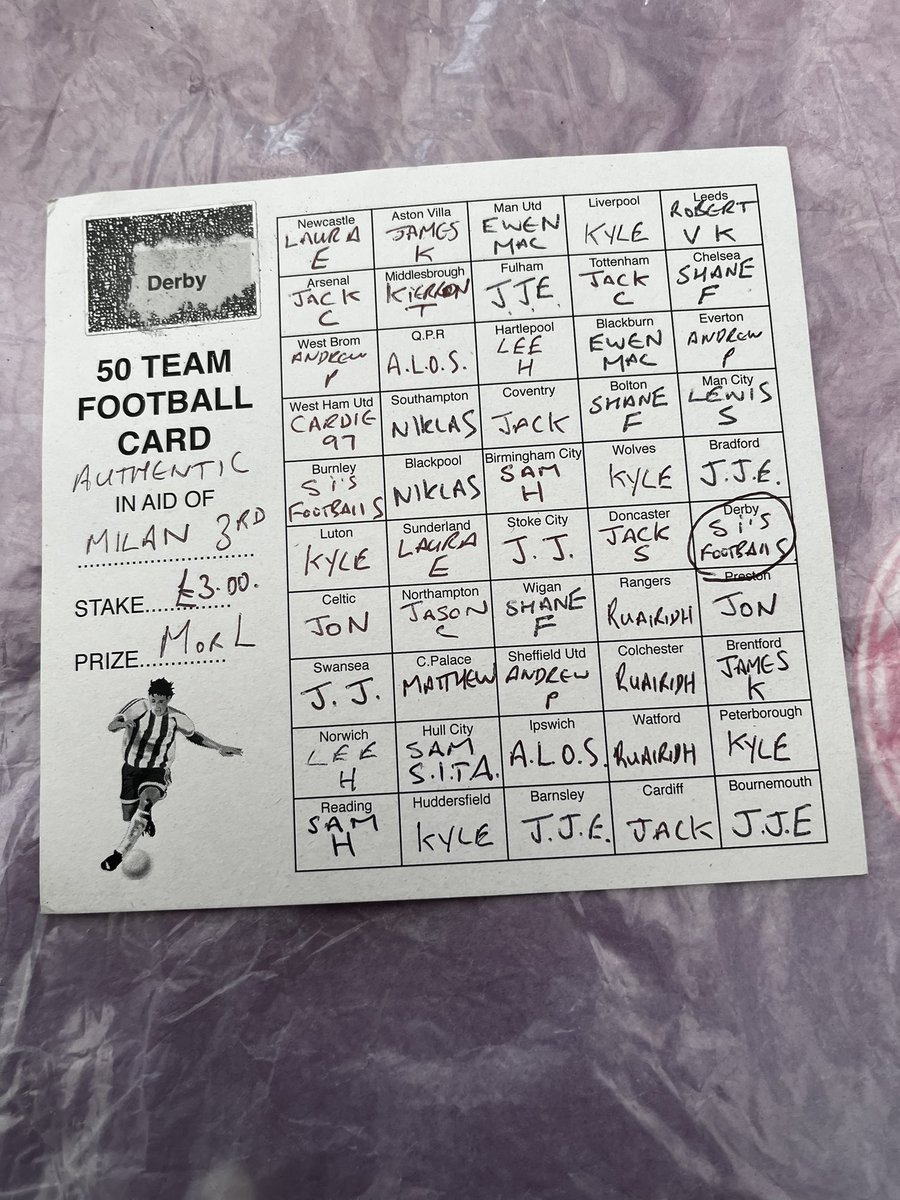 Derby
50 TEAM
FOOTBALL
CARD
AUTHENTIC
IN AID OF
MILAN 3RD
STAKE £3.00.
PRIZE MORL
Newcastle
LAURA
E
Aston Villa
JAMES
K
Man Utd
EWEN
MAC
Liverpool
KYLE
Leeds
ROBERT
V K
Arsenal
JACK
C
Middlesbrough
KIERRON
T
Fulham
J.J.E.
Tottenham
JACK
C
Chelsea
SHANE
F
West Brom
ANDREW
P
Q.P.R
A.L.O.S.
Hartlepool
LEE
H
Blackburn
EWEN
MAC
Everton
ANDREW
P
West Ham Utd
CARDIE
97
Southampton
NIKLAS
Coventry
JACK
Bolton
SHANE
F
Man City
LEWIS
S
Burnley
Si'S
FOOTBALLS
Blackpool
NIKLAS
Birmingham City
SAM
H
Wolves
KYLE
Bradford
J.J.E.
Luton
KYLE
Sunderland
LAURA
E
Stoke City
J.J.
Doncaster
JACK
S
Derby
Si'S
FOOTBALLS
Celtic
JON
Northampton
JASON
C
Wigan
SHANE
F
Rangers
RUAIRIDH
Preston
JON
Swansea
J.J.
C.Palace
MATTHEW
Sheffield Utd
ANDREW
P
Colchester
RUAIRIDH
Brentford
JAMES
K
Norwich
LEE
H
Hull City
SAM
S.I.T.A.
Ipswich
A.L.O.S.
Watford
RUAIRIDH
Peterborough
KYLE
Reading
SAM
H
Huddersfield
KYLE
Barnsley
J.J.E.
Cardiff
JACK
Bournemouth
J.J.E